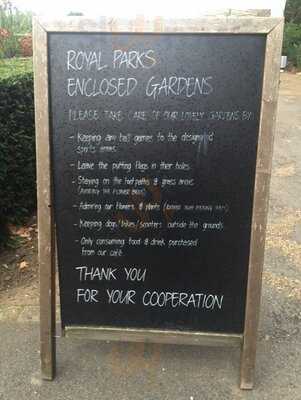 ROYAL PARKS
ENCLOSED GARDENS
PLEASE TAKE CARE OF OUR LOVELY GARDENS BY:
- Keeping any ball games to the designated
sports areas
- Leave the putting flags in their holes
- Staying on the footpaths & grass areas
(AVOIDING THE FLOWER BEDS)
- Admiring our flowers & plants (
- Keeping dogs/bikes/scooters outside the grounds
- Only consuming food & drink purchased
from our café
THANK YOU
FOR YOUR COOPERATION